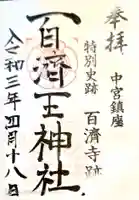 奉拝
中宮鎮座
特別史跡 百済寺跡
百濟王神社
令和三年四月十八日